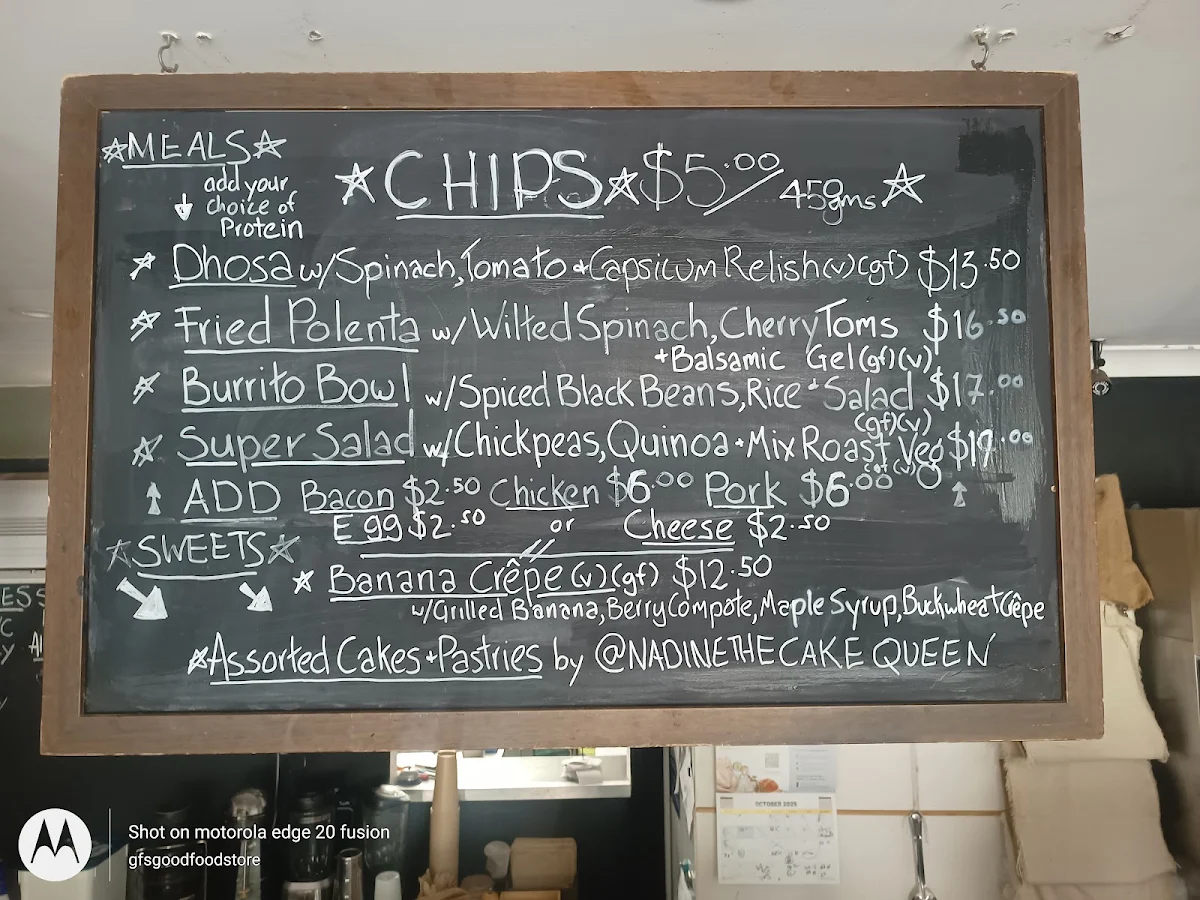 MEALS
add your
choice of
Protein
CHIPS $5.00/450gms
Dhosa w/Spinach, Tomato + Capsicum Relish (v)(gf) $13.50
Fried Polenta w/ Wilted Spinach, Cherry Toms $16.50
+Balsamic Gel (gf)(v)
Burrito Bowl w/Spiced Black Beans, Rice + Salad $17.00
(gf)(v)
Super Salad w/Chickpeas, Quinoa + Mix Roast Veg $19.00
(gf)(v)
ADD Bacon $2.50 Chicken $6.00 Pork $6.00
Egg $2.50 or Cheese $2.50
SWEETS
Banana Crêpe (v)(gf) $12.50
w/Grilled Banana, Berry Compote, Maple Syrup, Buckwheat Crêpe
Assorted Cakes + Pastries by @NADINETHECAKE QUEEN
OCTOBER 2025
Shot on motorola edge 20 fusion
gfsgoodfoodstore